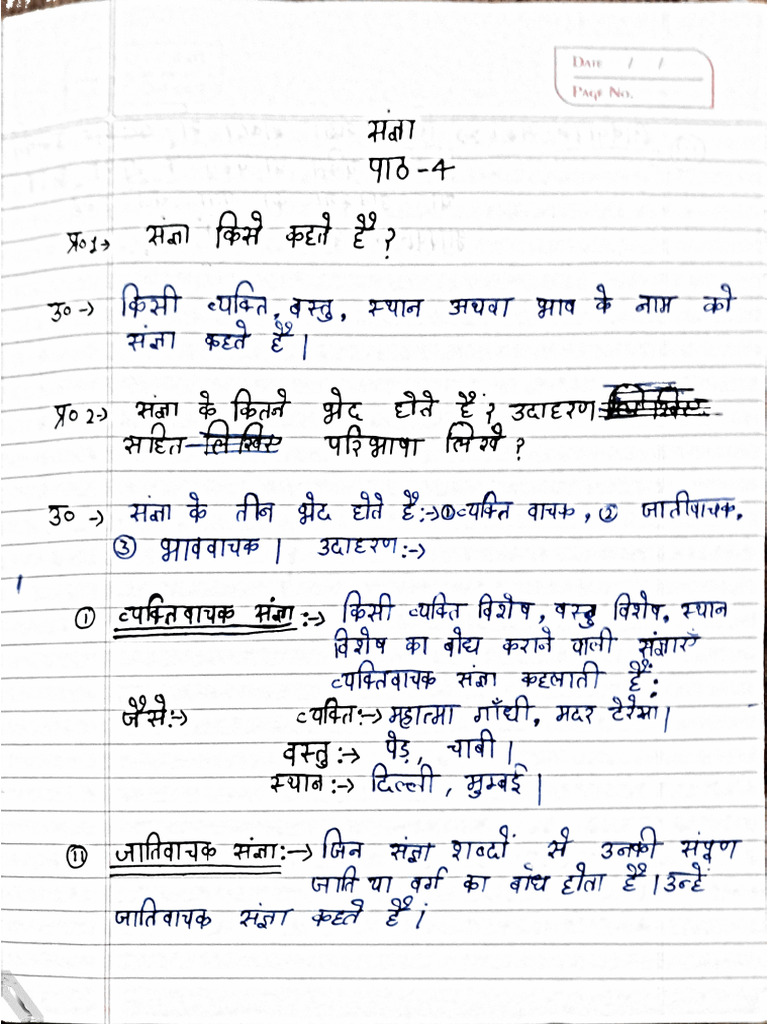 DATE / /
PAGE NO.
संज्ञा
पाठ - 4
प्र०1→ संज्ञा किसे कहते हैं ?
उ० → किसी व्यक्ति, वस्तु, स्थान अथवा भाव के नाम को
संज्ञा कहते हैं ।
प्र०2→ संज्ञा के कितने भेद होते हैं ? उदाहरण
सहित लिखिए परिभाषा लिखें ?
उ० → संज्ञा के तीन भेद होते हैं :→ ① व्यक्ति वाचक , ② जातीवाचक,
③ भाववाचक । उदाहरण :→
ⓘ व्यक्तिवाचक संज्ञा :→ किसी व्यक्ति विशेष, वस्तु विशेष, स्थान
विशेष का बोध कराने वाली संज्ञाएँ
व्यक्तिवाचक संज्ञा कहलाती हैं :
जैसे:→ व्यक्ति:→ महात्मा गाँधी, मदर टेरेसा ।
वस्तु :→ पेड़ , चाबी ।
स्थान :→ दिल्ली , मुम्बई ।
(ii) जातिवाचक संज्ञा :→ जिन संज्ञा शब्दों से उनकी संपूण
जाति या वर्ग का बोध होता है । उन्हें
जातिवाचक संज्ञा कहते हैं ।